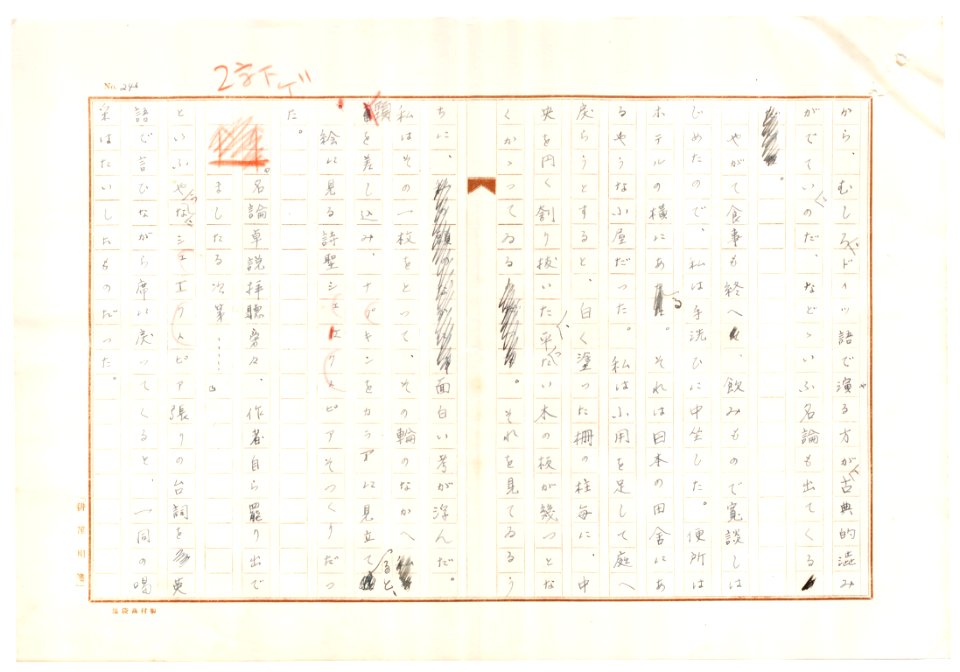 No. 246
2字下ゲ
から、むしろドイツ語で演る方が古典的澁み
がでていいのだ、などゝいふ名論も出てくる
。
やがて食事も終へ、飲みもので寛談しは
じめたので、私は手洗ひに中坐した。便所は
ホテルの横にある。それは日本の田舎にあ
るやうな小屋だった。私は小用を足して庭へ
戻らうとすると、白く塗った柵の柱毎に、中
央を円く刳り抜いた平たい木の板が幾つとな
くかゝってゐる。それを見てゐるう
ちに、面白い考が浮んだ。
私はその一枚をとって、その輪のなかへ
頭を差し込み、ナプキンをカラアに見立てると、
絵に見る詩聖シェクスピアそつくりだつ
た。
名論卓説拝聴労々、作者自ら罷り出で
ましたる次第……。」
といふやうなシェクスピア張りの台詞を英
語で言ひながら席に戻ってくると、一同の喝
采はたいしたものだった。